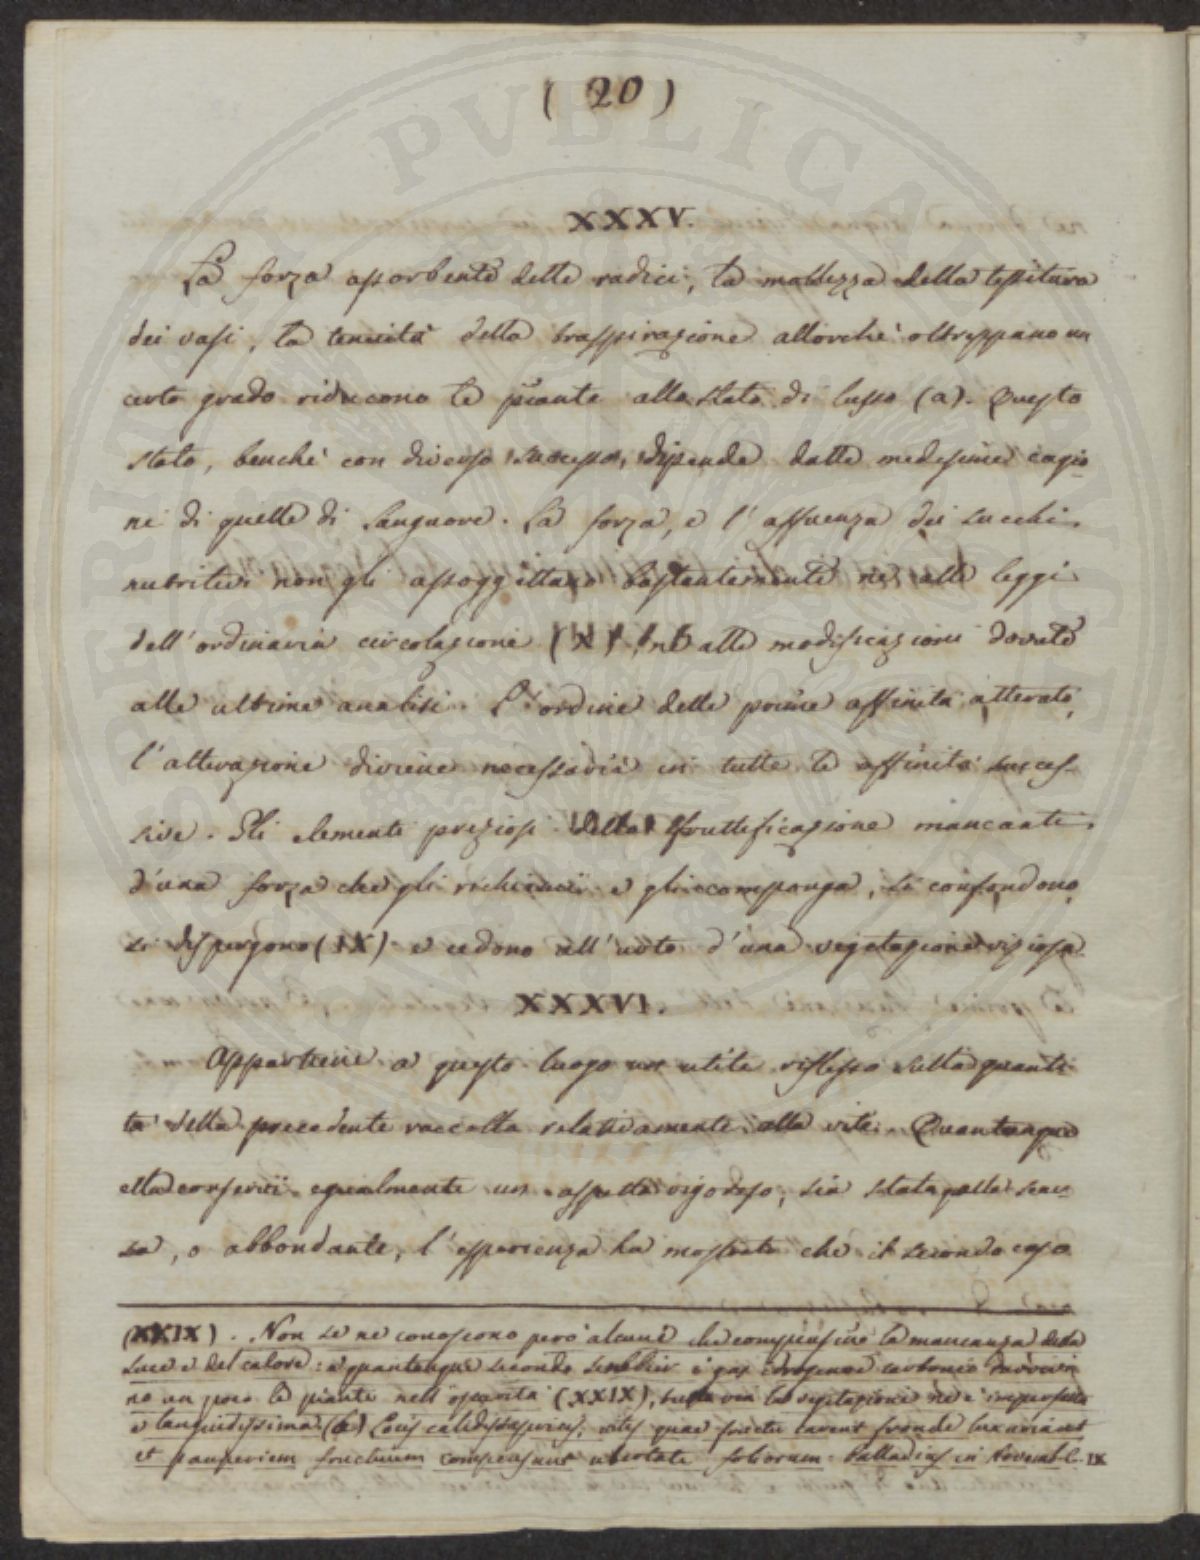 ( 20 )
XXXV.
La forza assorbente delle radici, la mollezza della tessitura
dei vasi, la tenuità della traspirazione allorchè oltrepassano un
certo grado riducono le piante allo stato di lusso (a). Questo
stato, benchè con diverso successo, dipende dalle medesime cagio-
ni di quelle di languore. La forza, e l'affluenza dei succhi
nutritivi non gli assoggettano bastantemente nè alle leggi
dell'ordinaria circolazione (X) nè alle modificazioni dovute
alle ultime analisi. L'ordine delle prime affinità alterato,
l'alterazione diviene necessaria in tutte le affinità succes-
sive. Gli elementi preziosi della fruttificazione mancanti
d'una forza che gli richiami e gli componga, si confondono,
si dispergono (IX) e cedono all'urto d'una vegetazione viziosa
XXXVI.
Appartiene a questo luogo un utile riflesso sulla quanti-
tà della precedente raccolta relativamente alla vite. Quantunque
ella conservi egualmente un aspetto vigoroso, sia stata quella scar-
sa, o abbondante, l'esperienza ha mostrato che il secondo caso
(XXIX). Non se ne conoscono però alcune che compensino la mancanza della
luce e del calore: e quantunque secondo Senebier i gas idrogeno e carbonico
no un poco le piante nell'oscurità (XXIX), tutta via la vegetazione ne è imperfetta
e languidissima. (a) Locis calidis vites quae fructu carent fronde luxuriant
et pauperiem fructuum compensant ubertate foliorum. Palladius in Novemb. IX